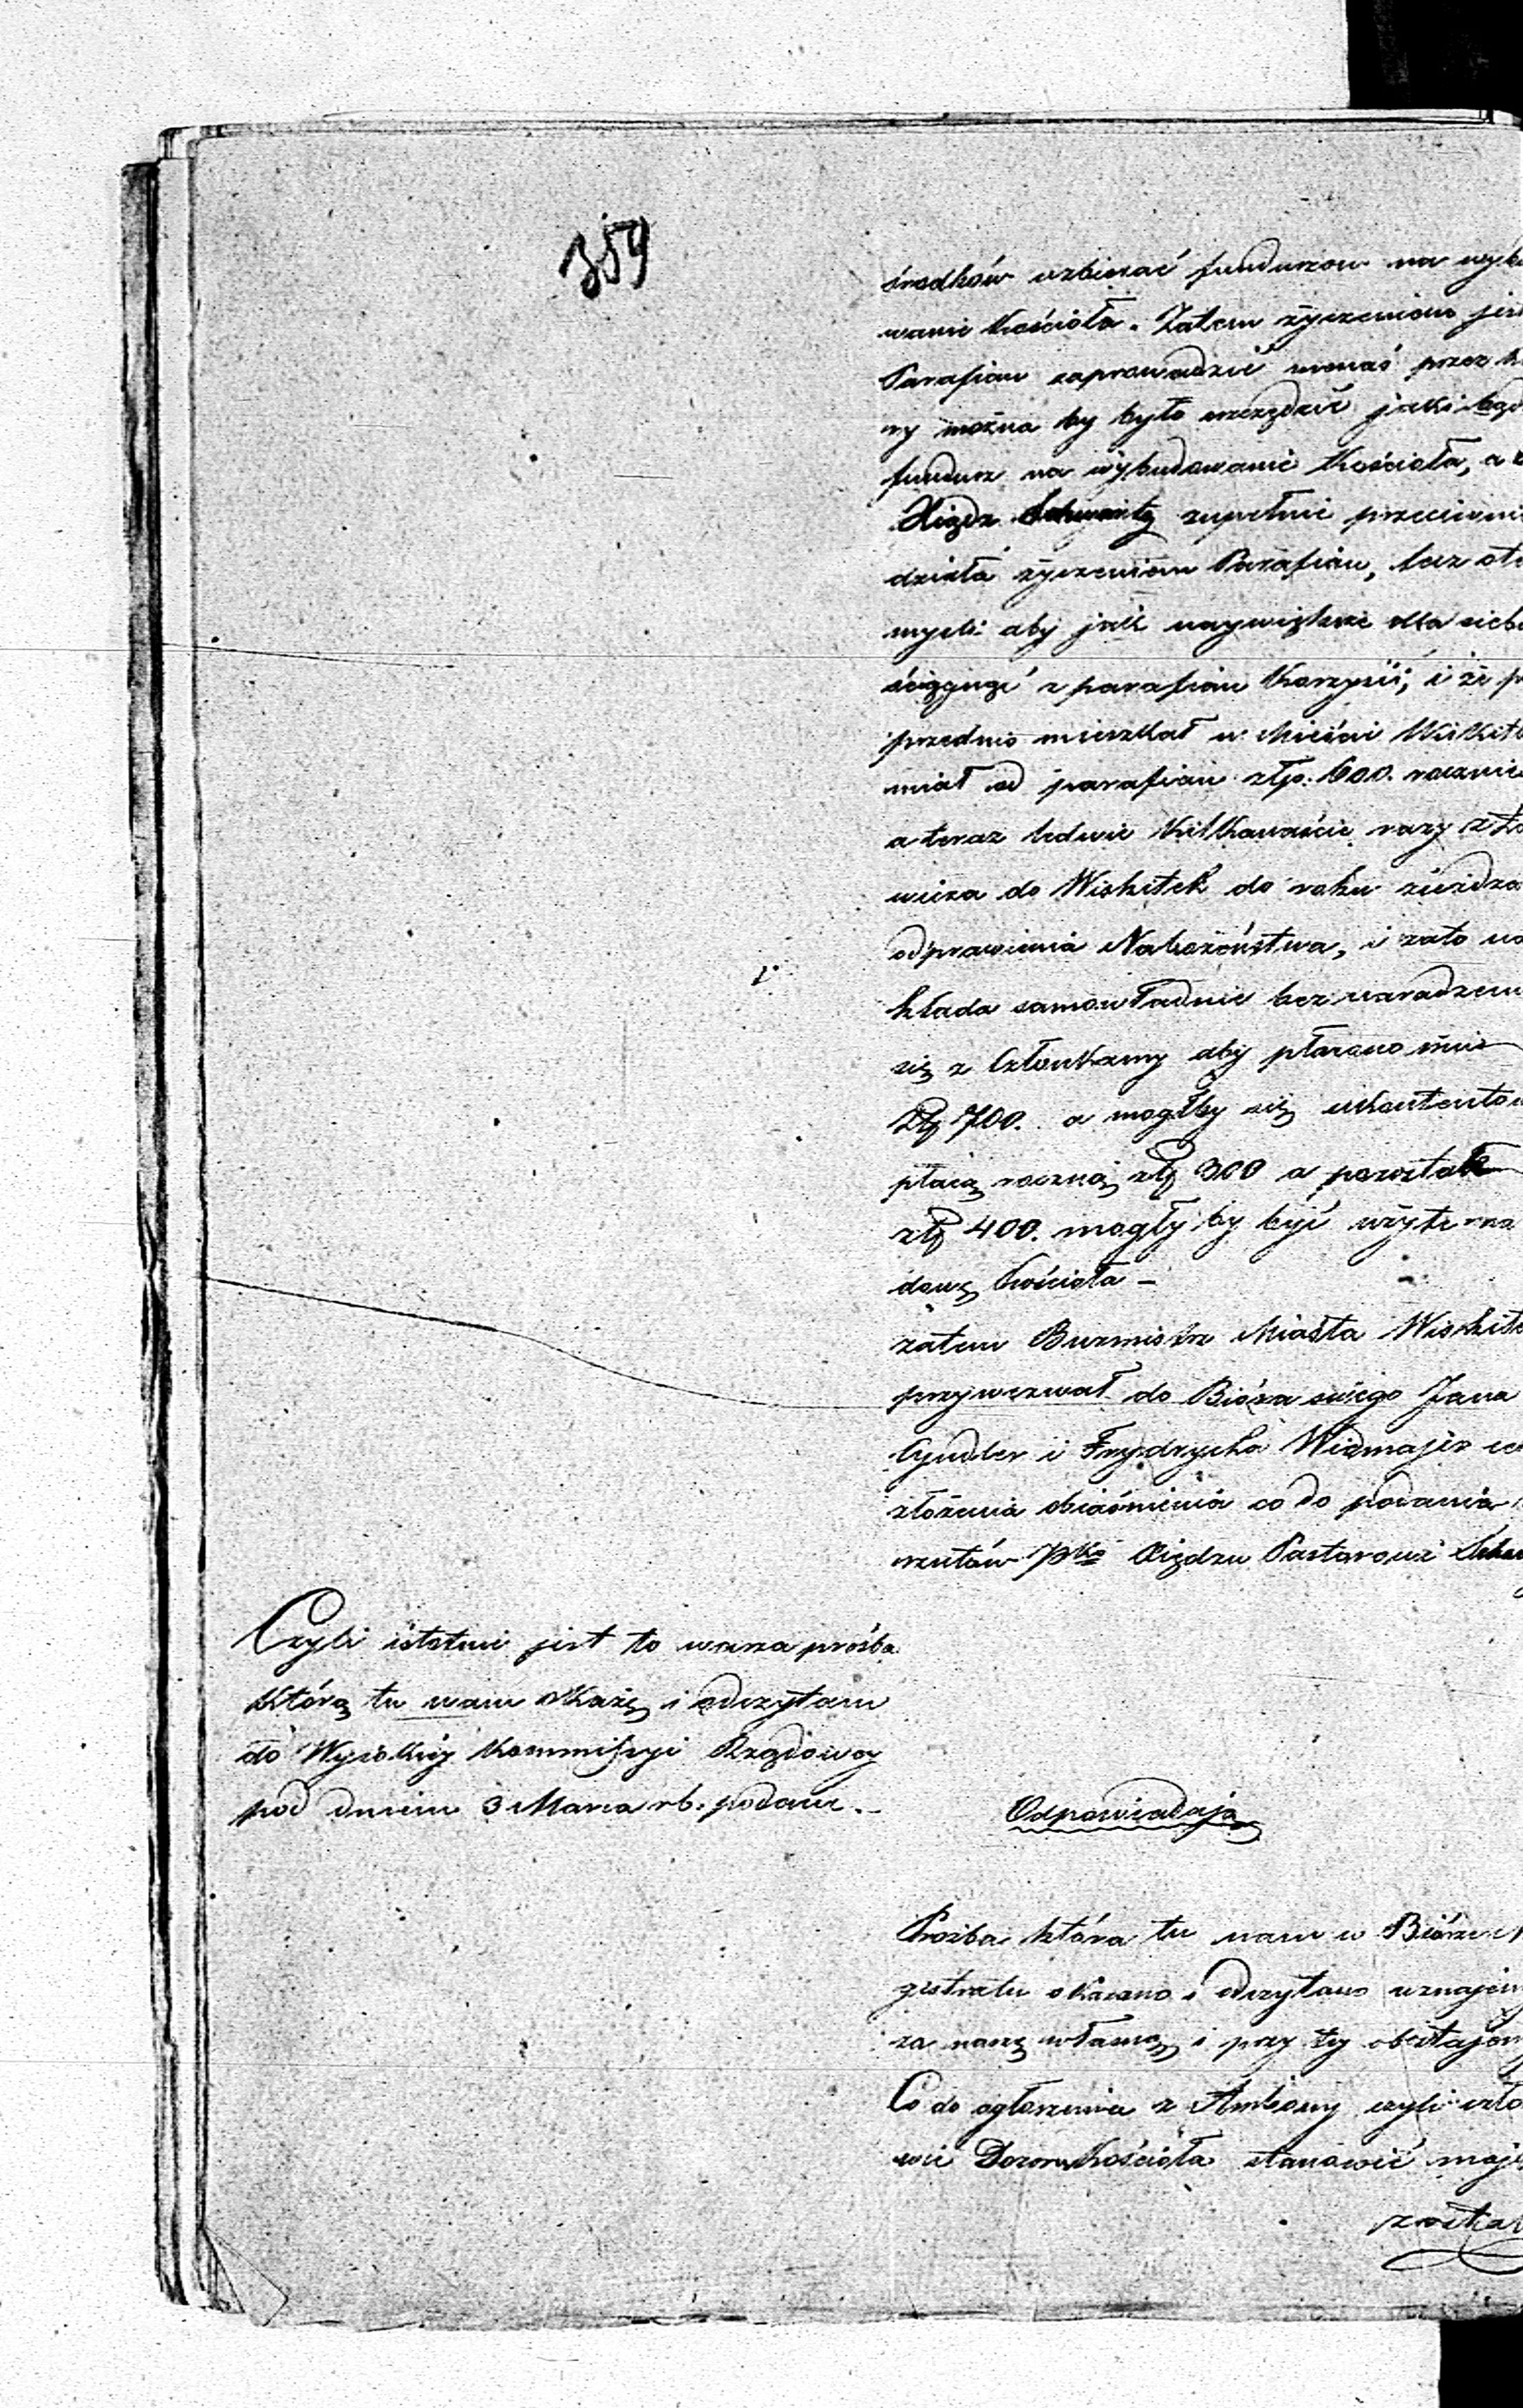 359
środków uzbierać funduszow na wybu
wanie Kościoła. Zatem życzeniem jest
Parafian zaprowadzić
ry można by było urządzić jaki bądź
fundusz na wybudowanie Kościoła, a
Xiądz zupełnie przeciwnie
działa życzeniom Parafian, lecz oto
myśli aby jak naywiększe dla siebie
ściągnąć z parafian Korzyści, i że p
przednio mieszkał w Mieście Wiskitk
miał od parafian złp. 600. rocznie
a teraz ledwie Kilkanaście razy z Ło
wicza do Wiskitek do roku zjeżdza
odprawienia Nabożeństwa, i zato na
kłada samowładnie bez naradzenia
się z Członkamy aby płacono mu
Złp 700. a mogłby się ukontentow
płacą roczną złp 300 a pozostałe
złp 400. mogły by być użyte na
dowę Kościoła –
zatem Burmistrz Miasta Wiskite
przywezwał do Bióra swego Jana
Cyndler i Frydrycha Widmajer
złożenia obiaśnienia co do podania
rzutów pko Xiędzu Pastorowi
Czyli istotnie jest to wasza prośba
którą tu wam okażę i odczytam
do Wysokiéy Kommissyi Rządowey
pod dniem 3 Marca rb. podana. –
Odpowiadają
Prozba która tu nam w Biórze M
gistratu okazano i odczytano uznajemy
za naszą własną i przy tey obstajemy
Co do ogłoszenia z Ambony czyli
wie Dozoru Kościoła stanowić mają
został